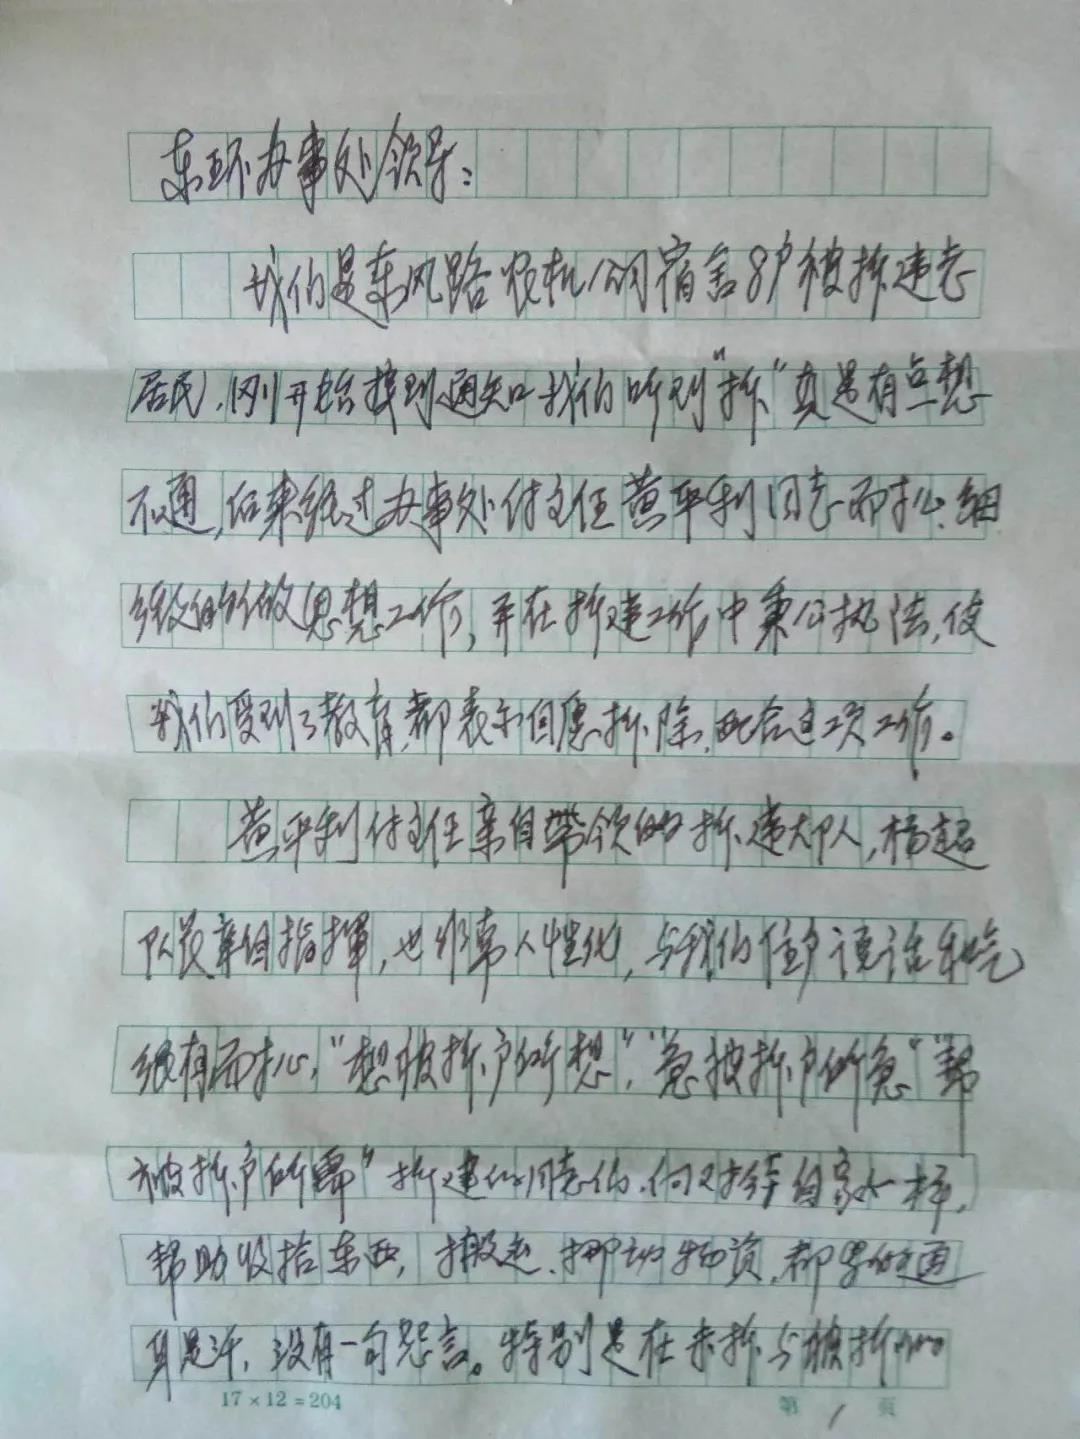 东环办事处领导：
我们是东风路农机公司宿舍8户被拆违老
居民，刚开始接到通知我们听到"拆"真是有点想
不通，后来经过办事处付主任黄平利同志耐心、细
致的做思想工作，并在拆违工作中秉公执法，使
我们受到了教育，都表示自愿拆除，配合这次工作。
黄平利付主任亲自带领的拆违大队人，杨超
队长亲自指挥，也非常人性化，与我们住户说话和气
很有耐心，"想被拆户所想"，"急被拆户所急""帮
被拆户所需"拆违的同志们，们又对待自家一样，
帮助收拾东西，搬运、挪动物资，都累的通
身是汗，没有一句怨言。特别是在未拆与被拆
17×12=204
第 1 页